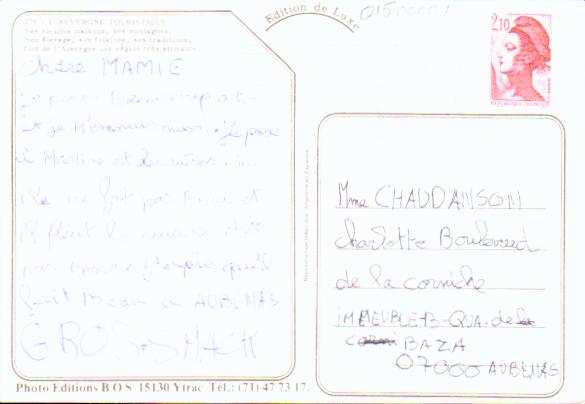 Edition de Luxe
01500001
276 - L'AUVERGNE TOURISTIQUE
Ses vieilles maisons, ses montagnes,
son élevage, son folklore, ses traditions,
font de l'Auvergne une région très attirante.
2,10
REPUBLIQUE FRANÇAISE
Chère MAMIE
je pense beaucoup a toi
et je M'ennuie aussi. je pense
à Martine et
ne fait pas Beau et
il pleut la
pas Bonne j'espère qu'il
fait Beau a AUBENAS
GROS SMACK
Mme CHAUDANSON
charlotte Boulevard
de la corniche
iMMEUBLE B-QUA. de la
BAZA
07000 AUBENAS
Photo Editions B O S 15130 Ytrac Tél.: (71) 47 73 17.